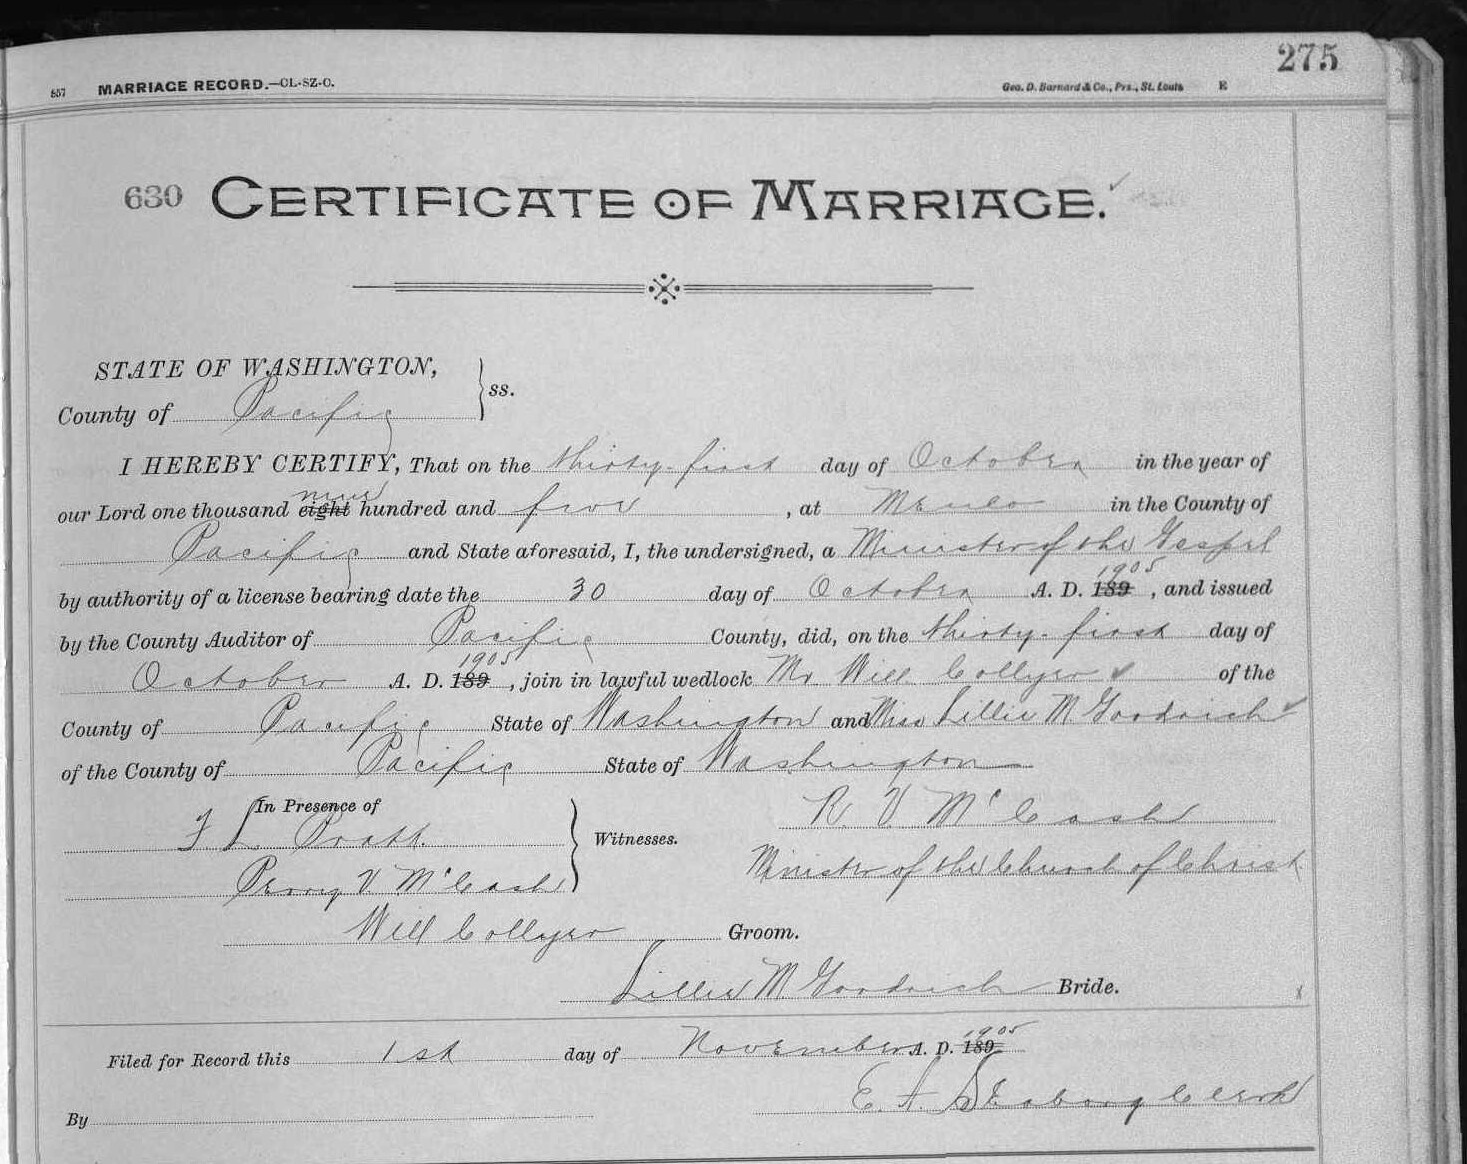 275
857 MARRIAGE RECORD.—CL-SZ-O. Geo. D. Barnard & Co., Prs., St. Louis E
630 CERTIFICATE OF MARRIAGE. ✓
STATE OF WASHINGTON,
County of Pacific } ss.
I HEREBY CERTIFY, That on the thirty-first day of October in the year of
our Lord one thousand eight nine hundred and five , at Menlo in the County of
Pacific and State aforesaid, I, the undersigned, a Minister of the Gospel
by authority of a license bearing date the 30 day of October A. D. 189 1905 , and issued
by the County Auditor of Pacific County, did, on the thirty-first day of
October A. D. 189 1905 , join in lawful wedlock Mr Will Collyer ✓ of the
County of Pacific State of Washington and Miss Lillie M Goodrich ✓
of the County of Pacific State of Washington
In Presence of
F L Pratt. } Witnesses. R. V McCash
Perry V McCash Minister of the Church of Christ
Will Collyer Groom.
Lillie M Goodrich Bride. x
Filed for Record this 1st day of November A. D. 189 1905
By E. A. Seaborg Clerk